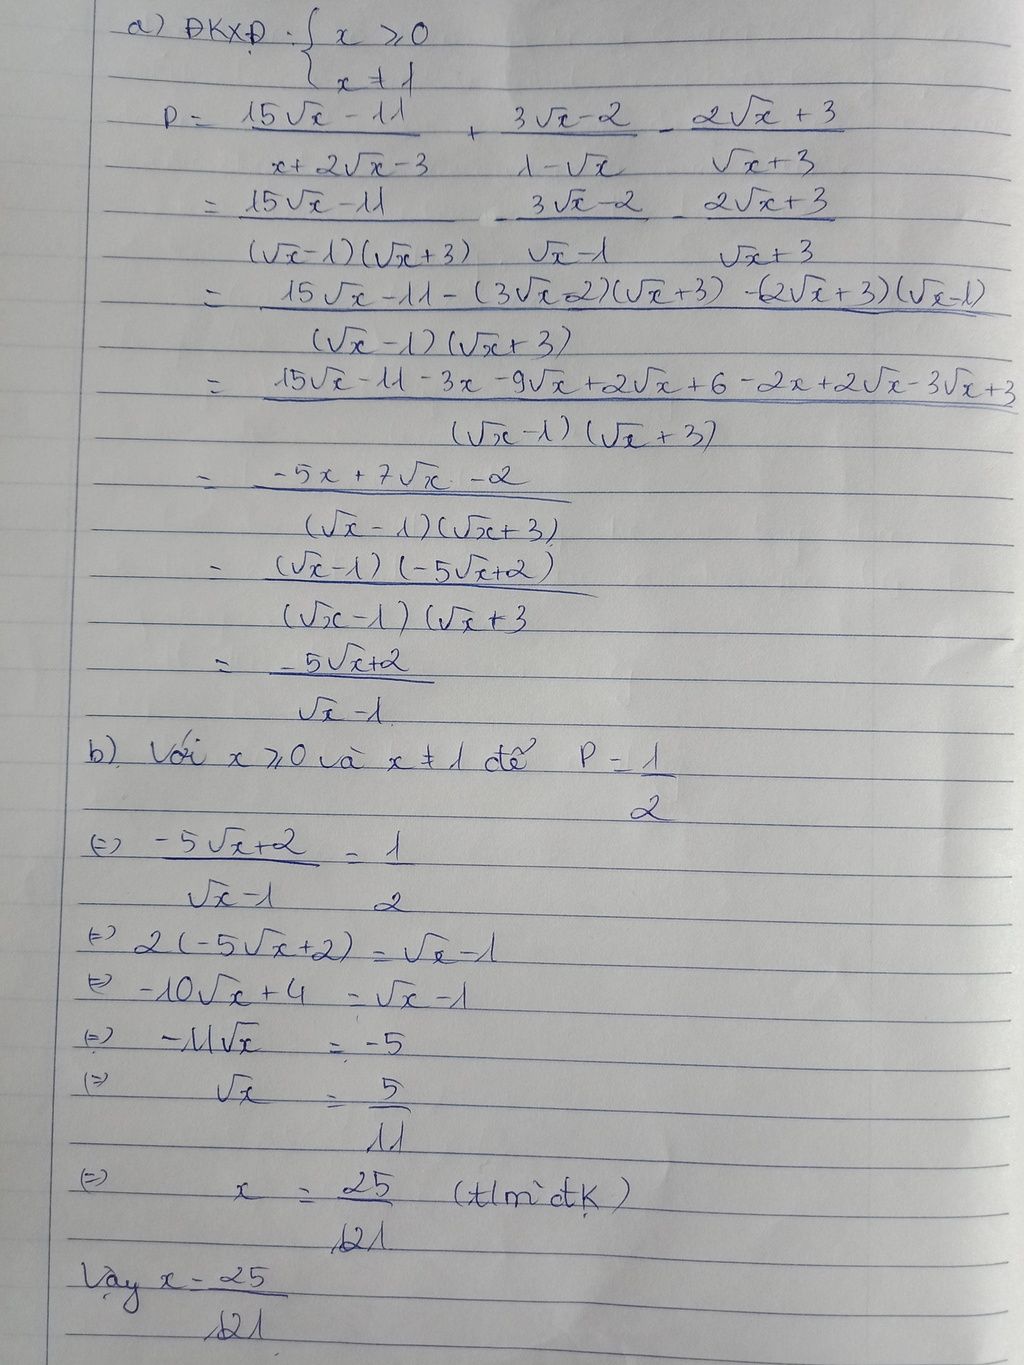 a) ĐKXĐ : { x ≥ 0
x ≠ 1
P = (15√x - 11)/(x + 2√x - 3) + (3√x - 2)/(1 - √x) - (2√x + 3)/(√x + 3)
= (15√x - 11)/((√x - 1)(√x + 3)) - (3√x - 2)/(√x - 1) - (2√x + 3)/(√x + 3)
= (15√x - 11 - (3√x - 2)(√x + 3) - (2√x + 3)(√x - 1))/((√x - 1)(√x + 3))
= (15√x - 11 - 3x - 9√x + 2√x + 6 - 2x + 2√x - 3√x + 3)/((√x - 1)(√x + 3))
= (-5x + 7√x - 2)/((√x - 1)(√x + 3))
= ((√x - 1)(-5√x + 2))/((√x - 1)(√x + 3
= (-5√x + 2)/(√x - 1)
b) Với x ≥ 0 và x ≠ 1 để P = 1/2
(=) (-5√x + 2)/(√x - 1) = 1/2
(=) 2(-5√x + 2) = √x - 1
(=) -10√x + 4 = √x - 1
(=) -11√x = -5
(=) √x = 5/11
(=) x = 25/121 (t/m đk)
Vậy x = 25/121